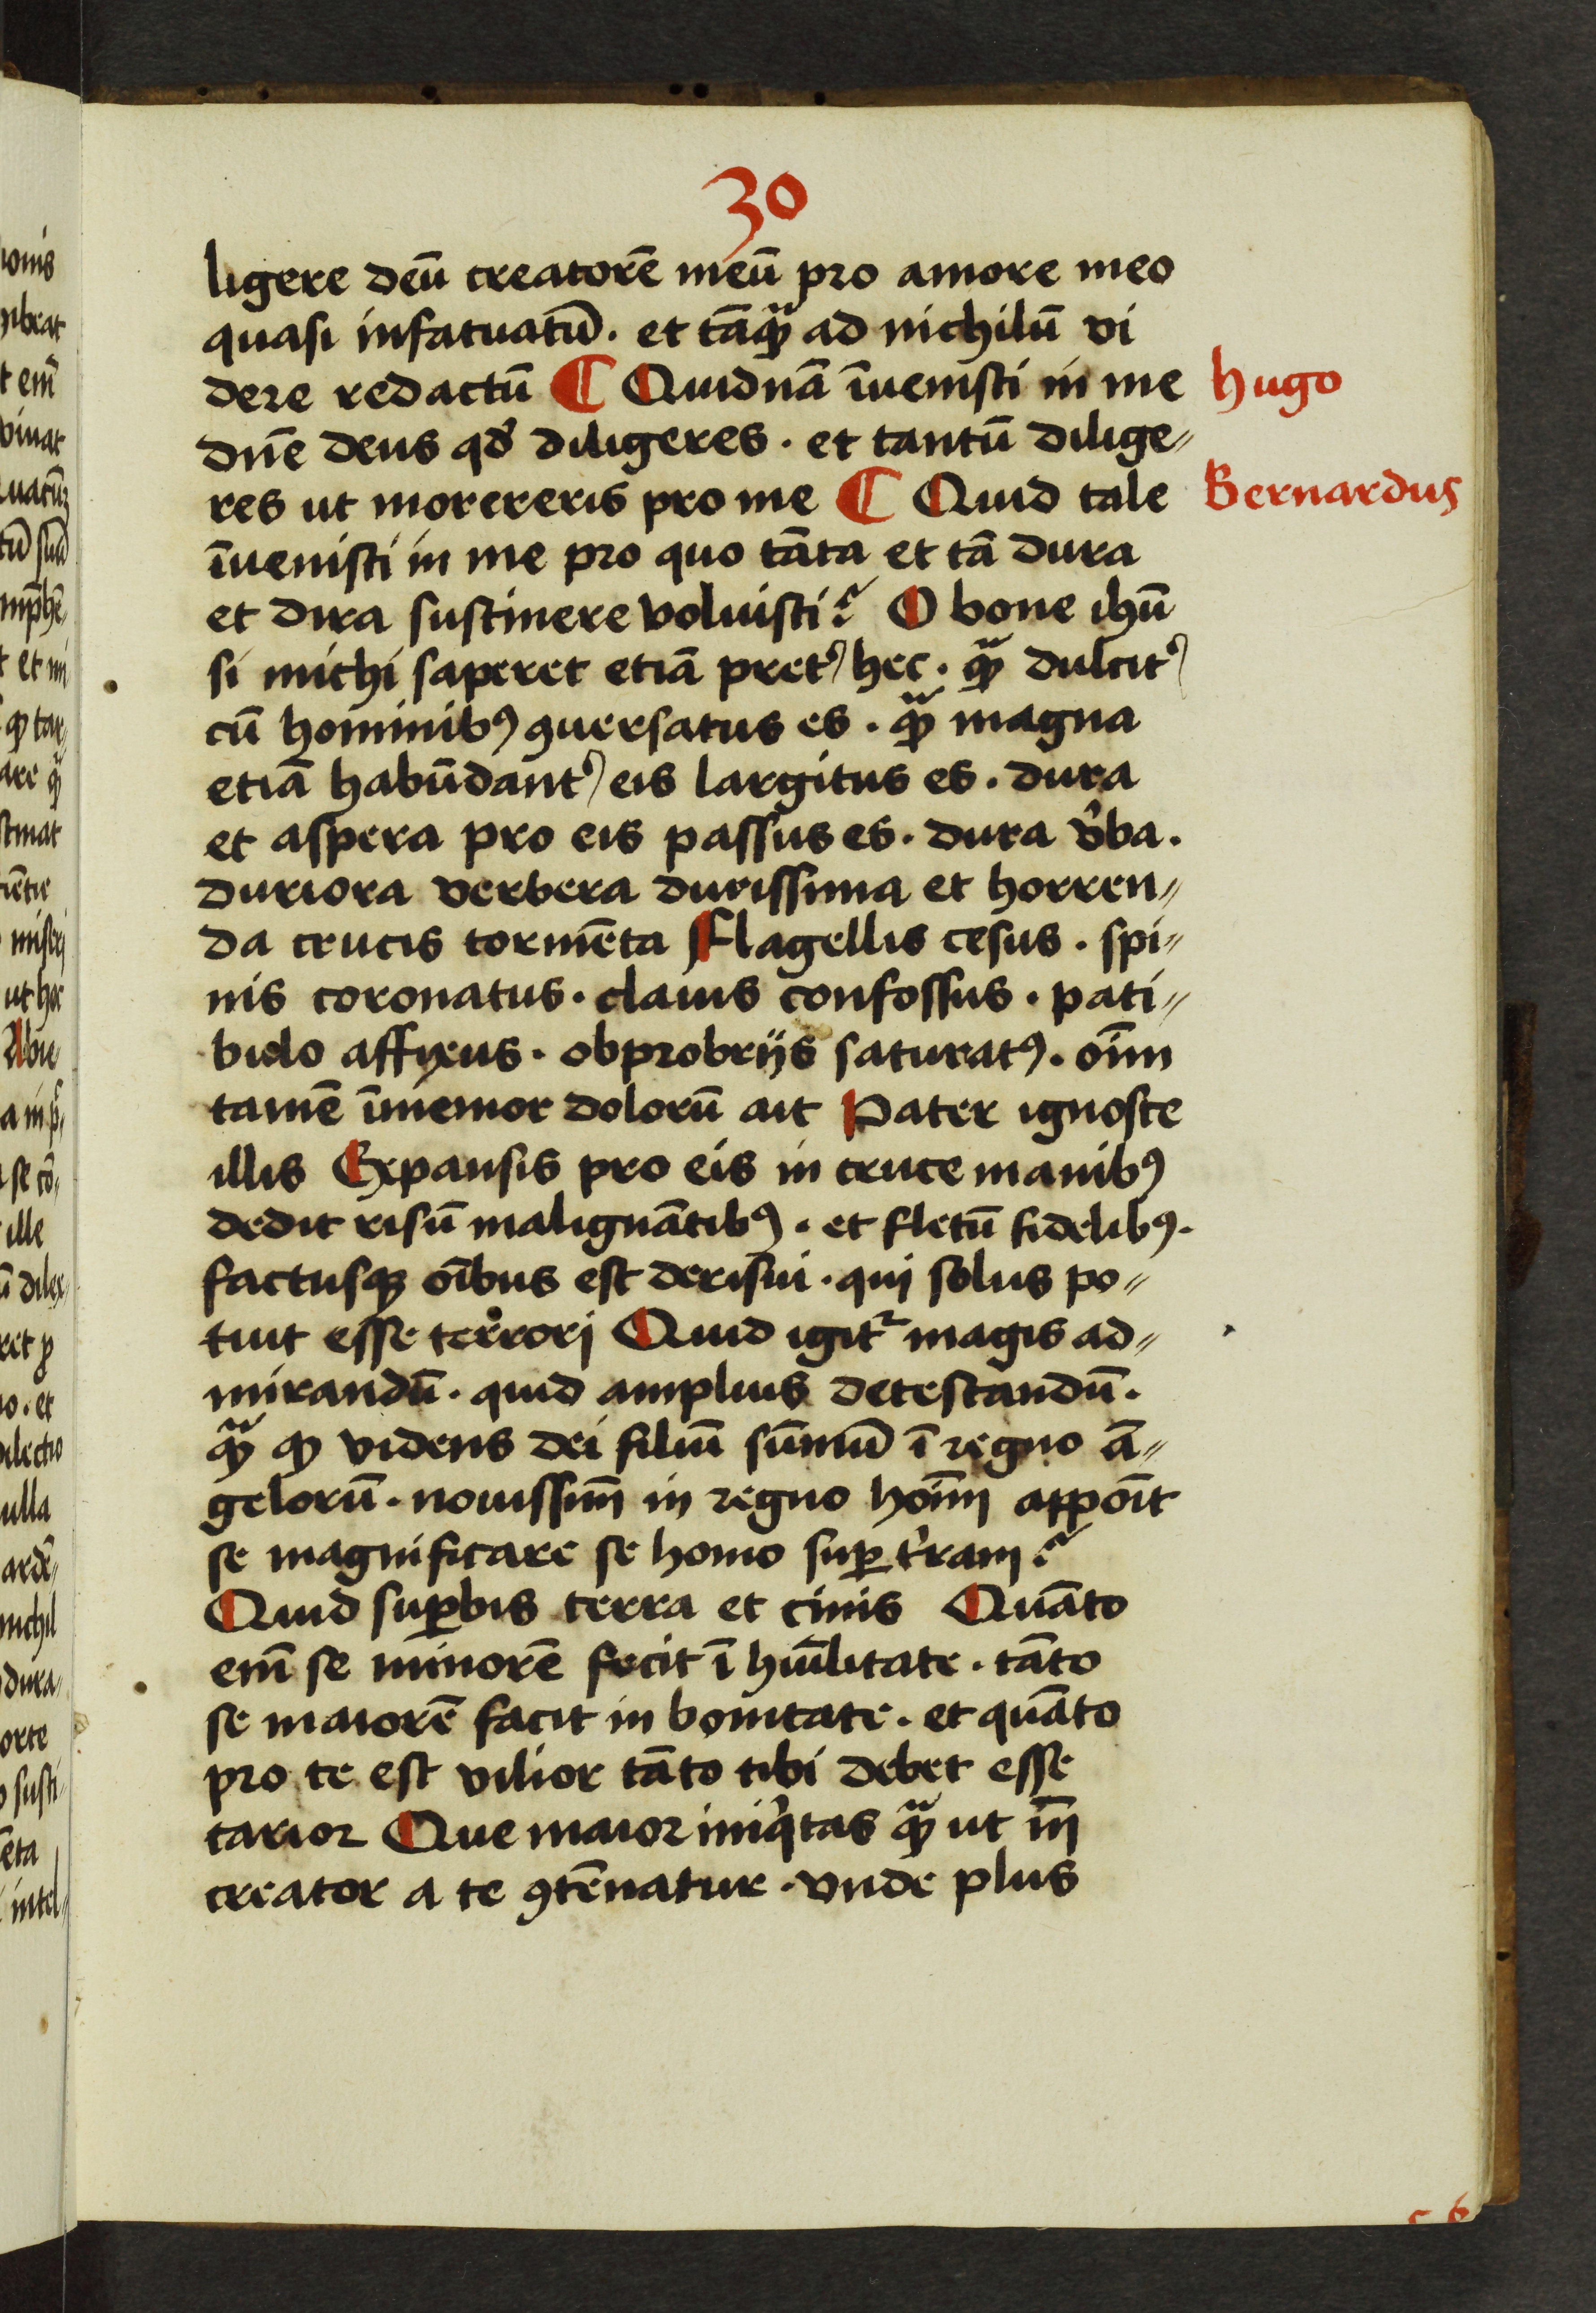 30
ligere deū creatorē meū pro amore meo
quasi infatuatū. et tāq̄ȝ ad nichilū vi
dere redactū ¶ Quidnā īuenisti in me
Hugo
dn̄e deus qd' diligeres. et tantū dilige〃
res ut morereris pro me ¶ Quid tale
Bernardus
īuenisti in me pro quo tāta et tā dura
et dira sustinere voluisti? O bone ihū
si michi saperet etiā pret' hec. q̄ȝ dulcit'
cū hominibꝰ ꝯuersatus es. q̄ȝ magna
etiā habūdant' eis largitus es. dura
et aspera pro eis passus es. dura v'ba.
duriora verbera durissima et horren〃
da crucis tormēta Flagellis cesus. spi〃
nis coronatus. clauis confossus. pati〃
bulo affixus. obprobrijs saturatꝰ. oīm
tamē īmemor dolorū ait Pater ignosce
illis Expansis pro eis in cruce manibꝰ
dedit risū malignātibꝰ. et fletū fidelibꝰ.
factusqȝ oībus est derisui. qui solus po〃
tuit esse terrori Quid igit᷑ magis ad〃
mirandū. quid amplius detestandū.
q̄ȝ qȝ videns dei filiū sūmū ī regno ā〃
gelorū. nouissim̄ in regno hoīm appoīt
se magnificare se homo suꝑ t'ram?
Quid suꝑbis terra et cinis Quāto
em̄ se minorē fecit ī hūilitate. tāto
se maiorē facit in bonitate. et quāto
pro te est vilior tāto tibi debet esse
carior Que maior iniq'tas q̄ȝ ut m̄
creator a te ꝯtēnatur. vnde plus
c 6